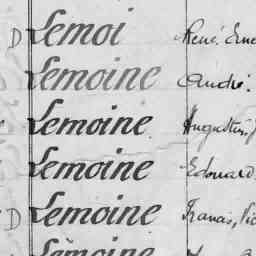 D Lemoi René. Erne
Lemoine André.
Lemoine. Augustin. J
Lemoine Edouard
D Lemoine Francis, Vic
Lemoine